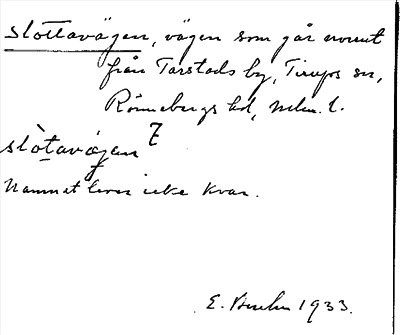 slottavägen, vägen som går norrut
från Tarstads by, Tirups sn,
Rönnebergs hd, mlm. l.
slòtavägen
Namnet lever icke kvar.
E. 1933.